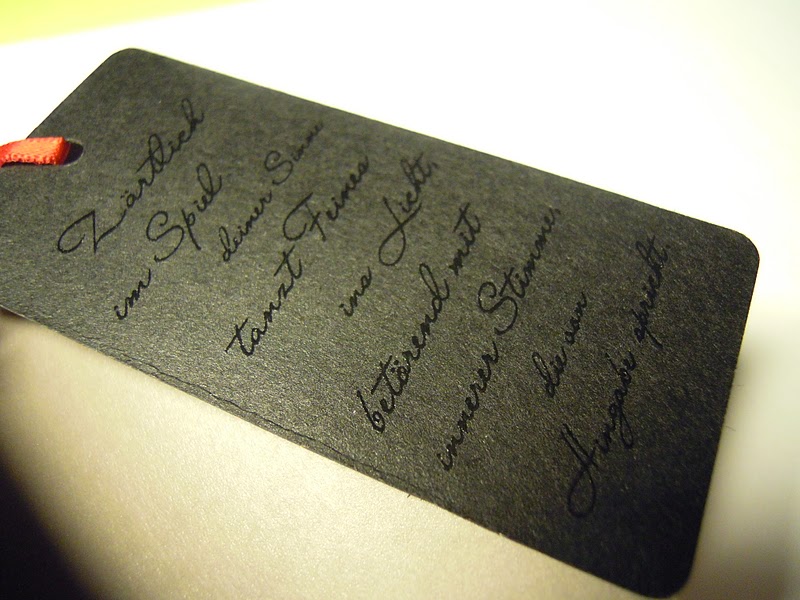 Zärtlich
im Spiel
deiner Sinne
tanzt Feines
ins Licht,
betörend mit
innerer Stimme,
die von
Hingabe spricht.